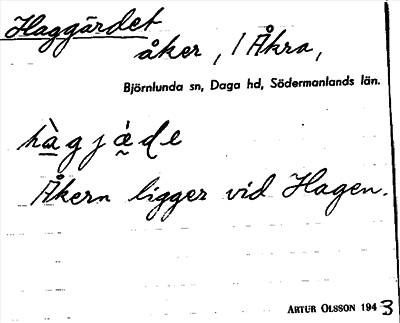 Haggärdet
åker, / Åkra,
Björnlunda sn, Daga hd, Södermanlands län.
hàgjä́de
Åkern ligger vid Hagen.
ARTUR OLSSON 1943